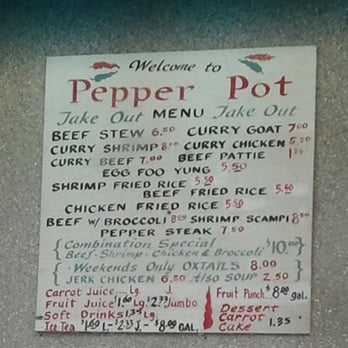 Welcome to
Pepper Pot
Take Out MENU Take Out
BEEF STEW 6.50 CURRY GOAT 7.00
CURRY SHRIMP CURRY CHICKEN 5.50
CURRY BEEF 7.00 BEEF PATTIE
EGG FOO YUNG 5.50
SHRIMP FRIED RICE 5.50
BEEF FRIED RICE 5.50
CHICKEN FRIED RICE 5.50
BEEF W/ BROCCOLI 8.00 SHRIMP SCAMPI 8.50
PEPPER STEAK 7.50
Combination Special $10.00
Beef-Shrimp-Chicken & Broccoli
Weekends Only OXTAILS 8.00
JERK CHICKEN 6.50 Also SOUP 2.50
Carrot Juice Lg. J.
Fruit Juice Lg. Jumbo
Soft Drinks Lg J
Ice Tea L- J.- $8.00 GAL.
Fruit Punch $8.00 gal.
Dessert
Carrot
Cake 1.35